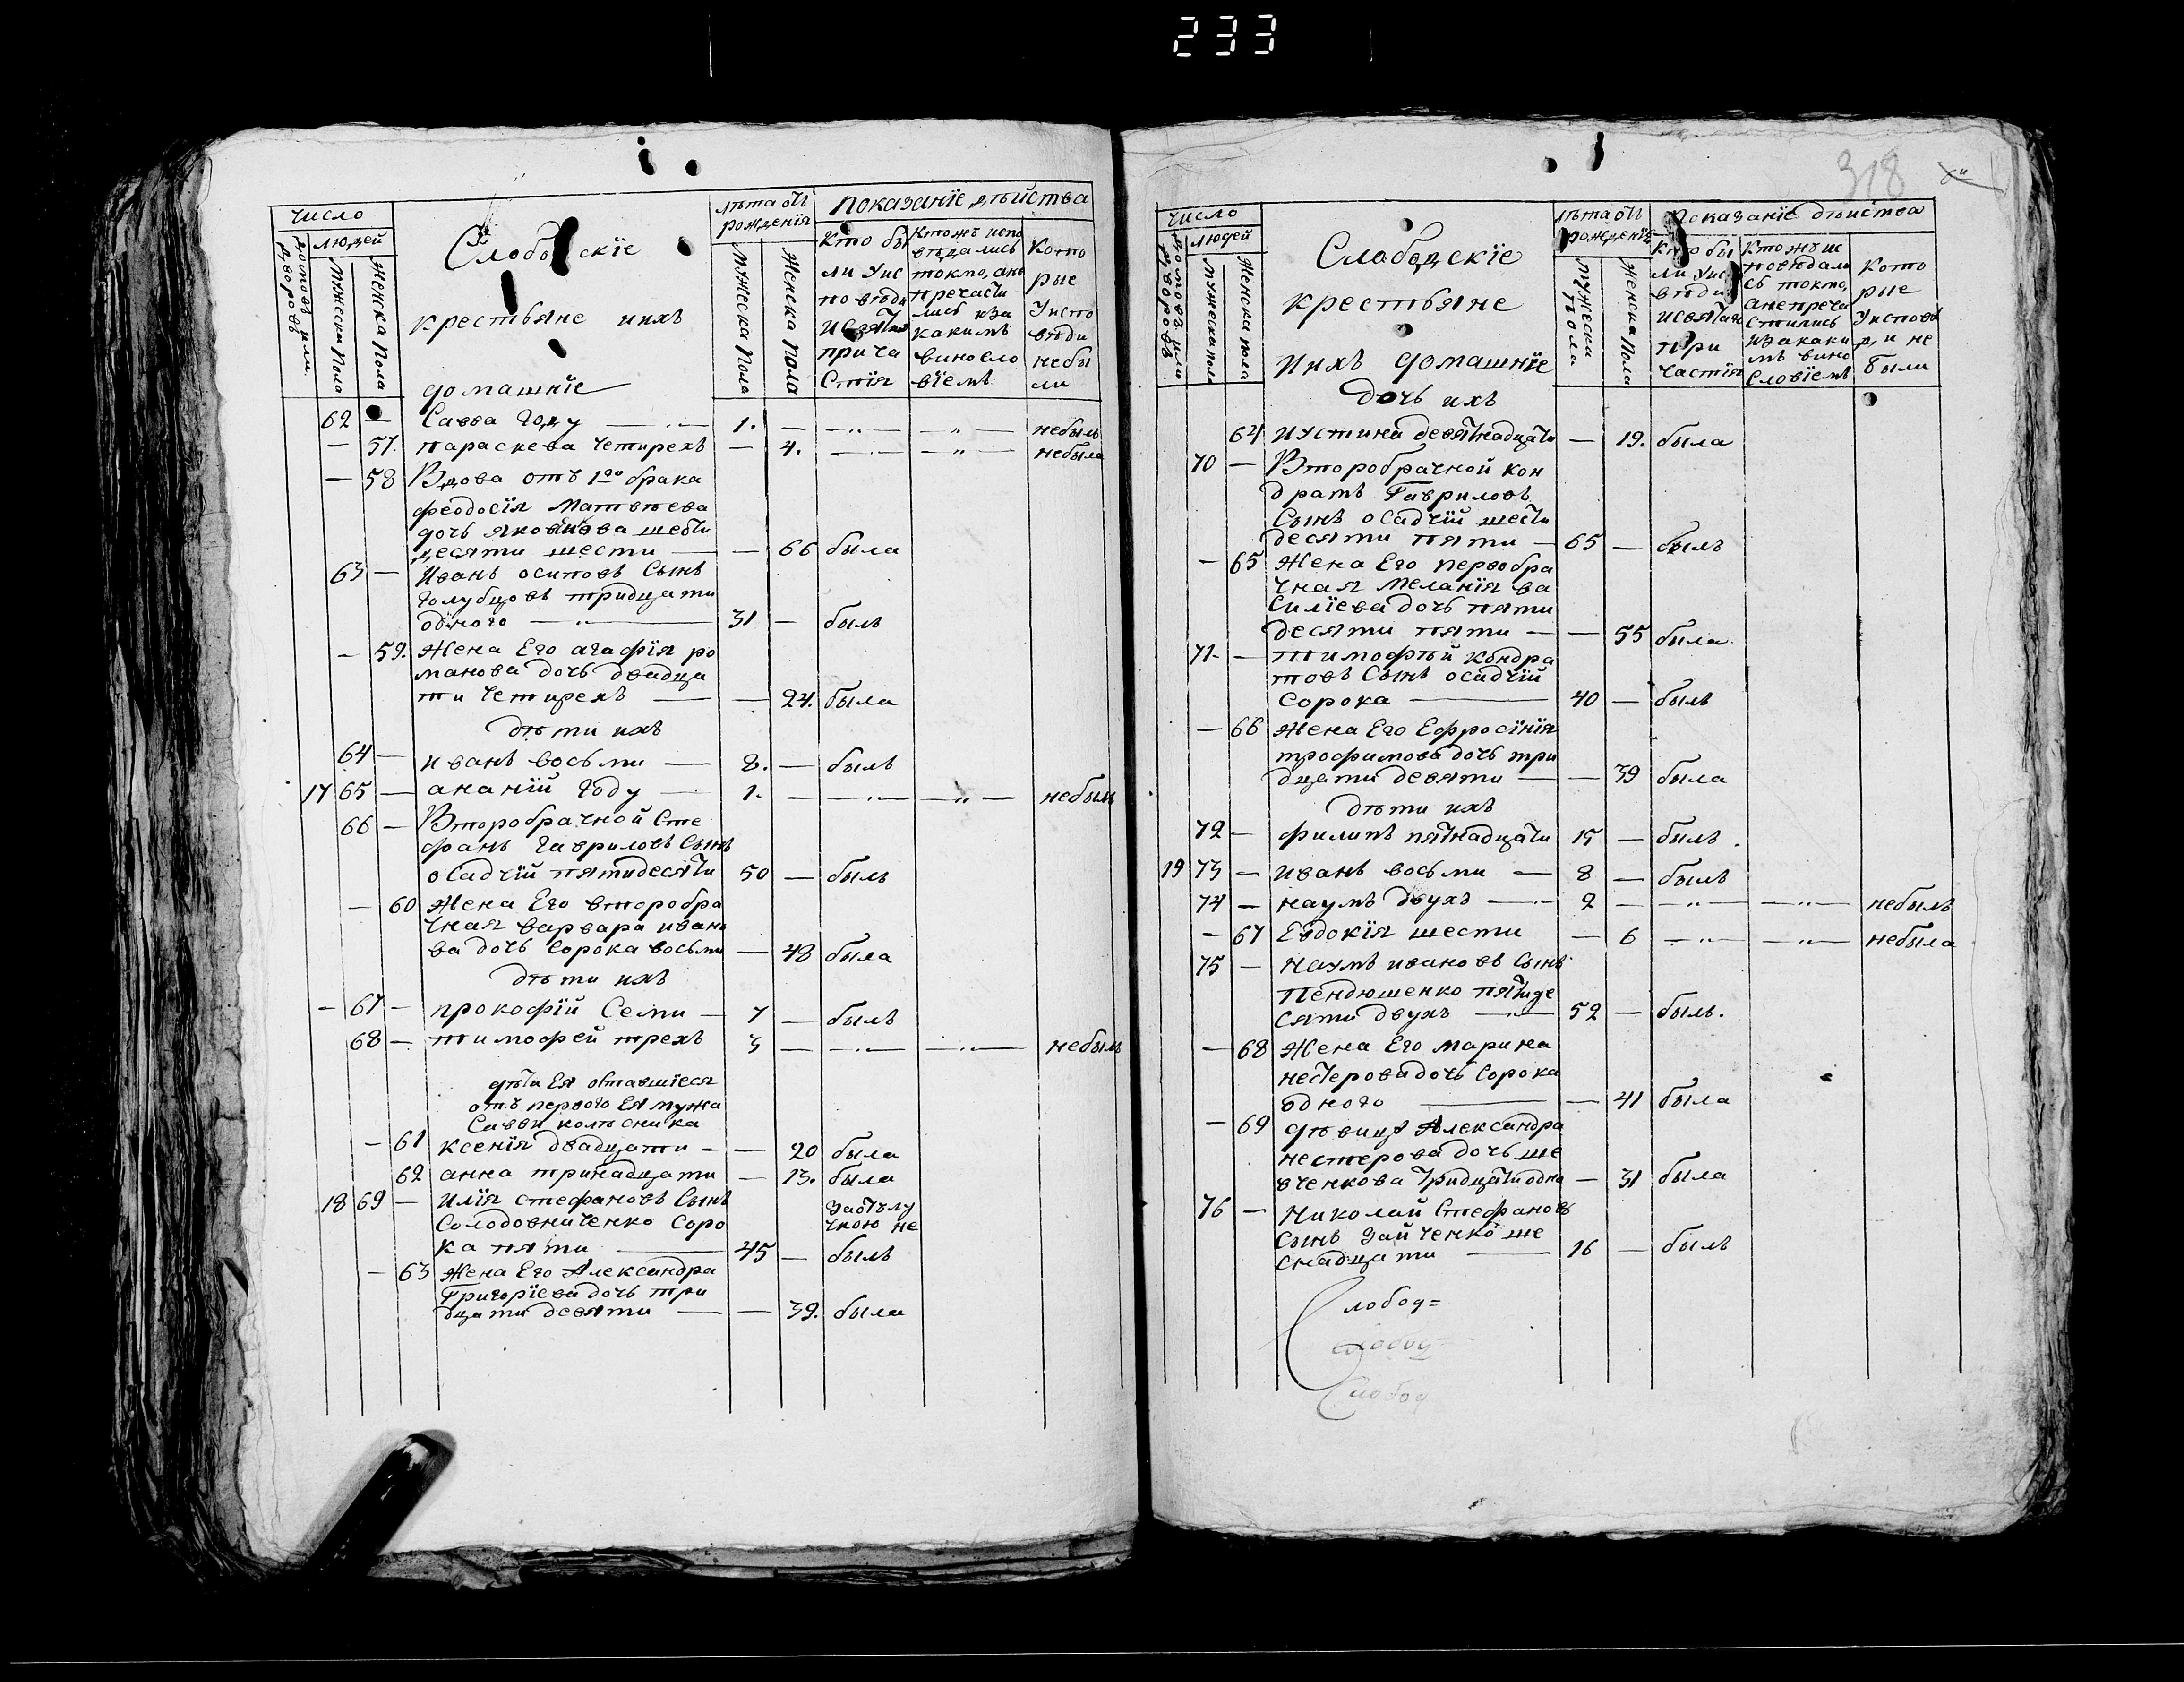 233
число
людей
домовъ или дворовъ
мужеска пола
женска пола
Слободскїе
крестьяне ихъ
домашнїе
лѣта отъ рожденїя
мужеска пола
женска пола
показанїе дѣйства
кто бы
ли у ис
повѣди
и святаго
прича
стїя
кто жъ испо
вѣдались
токмо, а не
причасти
лись и за
какимъ
виносло
вїемъ
кото
рые
у испо
вѣди
не бы
ли
62 — Савва году — 1. — — „ — — „ — небылъ
— 57. параскева четирехъ — 4. — „ — — „ — небыла
— 58 Вдова отъ 1го брака
феодосїя Матвѣева
дочь яковцова шести
десяти шести — — 66 была
63 — Иванъ осиповъ сынъ
голубцовъ тридцати
одного — 31 — былъ
— 59. жена Его агафїя ро
манова дочь двадца
ти четирехъ — — 24. была
дѣти ихъ
64 — иванъ восьми — 8. — былъ
17 65 — ананїй году — 1. — — „ — — „ — небылъ
66 — Второбрачной Сте
фанъ гавриловъ сынъ
осадчїй пятидесяти 50 — былъ
— 60 жена Его второбра
чная варвара ивано
ва дочь сорока восьми — 48 была
дѣти ихъ
— 67 — прокофїй семи — 7 — былъ
68 — тимофей трехъ 3 — — „ — — „ — небылъ
дѣти Ея оставшїеся
отъ первого Ея мужа
Савви колѣсника
— 61 ксенїя двадцати — — 20 была
62 анна тринадцати — 13. была
18 69 — илїя стефановъ сынъ за отлу
солодовниченко соро чкою не
ка пяти — 45 — былъ
— 63 жена Его Александра
Григорїева дочь три
дцати девяти — — 39. была
318
число
людей
домовъ или дворовъ
мужеска пола
женска пола
Слабодскїе
крестьяне
ихъ домашнїе
лѣта отъ рожденїя
мужеска пола
женска пола
показанїе дѣйства
кто бы
ли у ис
вѣди
и святаго
при
частїя
кто жъ ис
повѣдали
сь токмо,
а не прича
стились
и за каки
мъ вино
словїемъ
кото
рые
у исповѣ
ди не
были
дочь ихъ
64 иустина девятнадцати — 19. была
70 — Второбрачной кон
дратъ Гавриловъ
сынъ осадчїй шести
десяти пяти — 65 — былъ
— 65 жена Его первобра
чная меланїя ва
силїева дочь пяти
десяти пяти — — 55 была
71. — тимофѣй кондра
товъ сынъ осадчїй
сорока — 40 — былъ
— 66 жена Его Ефросїнїя
трофимова дочь три
дцати девяти — — 39 была
дѣти ихъ
72 — филипъ пятнадцати 15 — былъ.
19 73 — иванъ восьми — 8 — былъ
74 — наумъ двухъ — 2 — — „ — — „ — небылъ
— 67 Евдокїя шести — 6 — „ — — „ — небыла
75 — Наумъ ивановъ сынъ
Пендюшенко пятиде
сяти двухъ — 52 — былъ.
— 68 жена Его марина
нестерова дочь сорока
одного — — 41 была
— 69 дѣвица Александра
нестерова дочь ше
вченкова тридцати одно — 31 была
76 — Николай Стефановъ
сынъ зайченко ше
снадцати — 16 — былъ
Слобод=
слобод=
Слобод